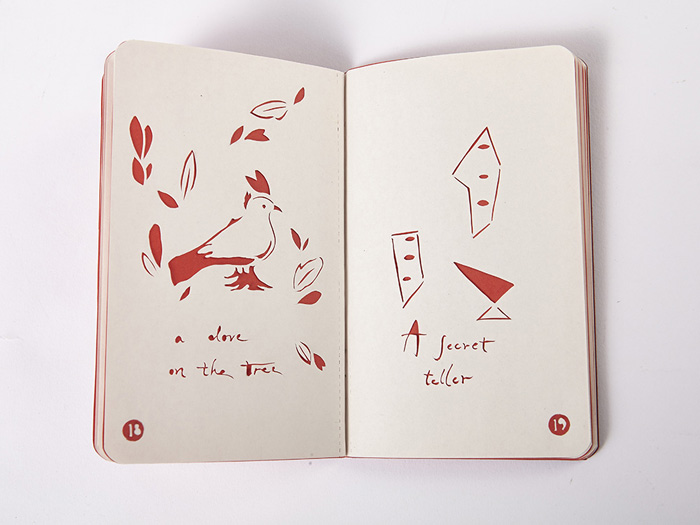 a dove
on the Tree
18
A secret
teller
19